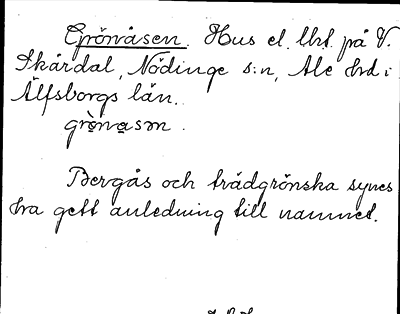 Grönåsen. Hus el. lht. på V.
Skårdal, Nödinge s:n, Ale hd i
Älfsborgs län.
grö̀nåsm.
Bergås och trädgrönska synes
ha gett anledning till namnet.